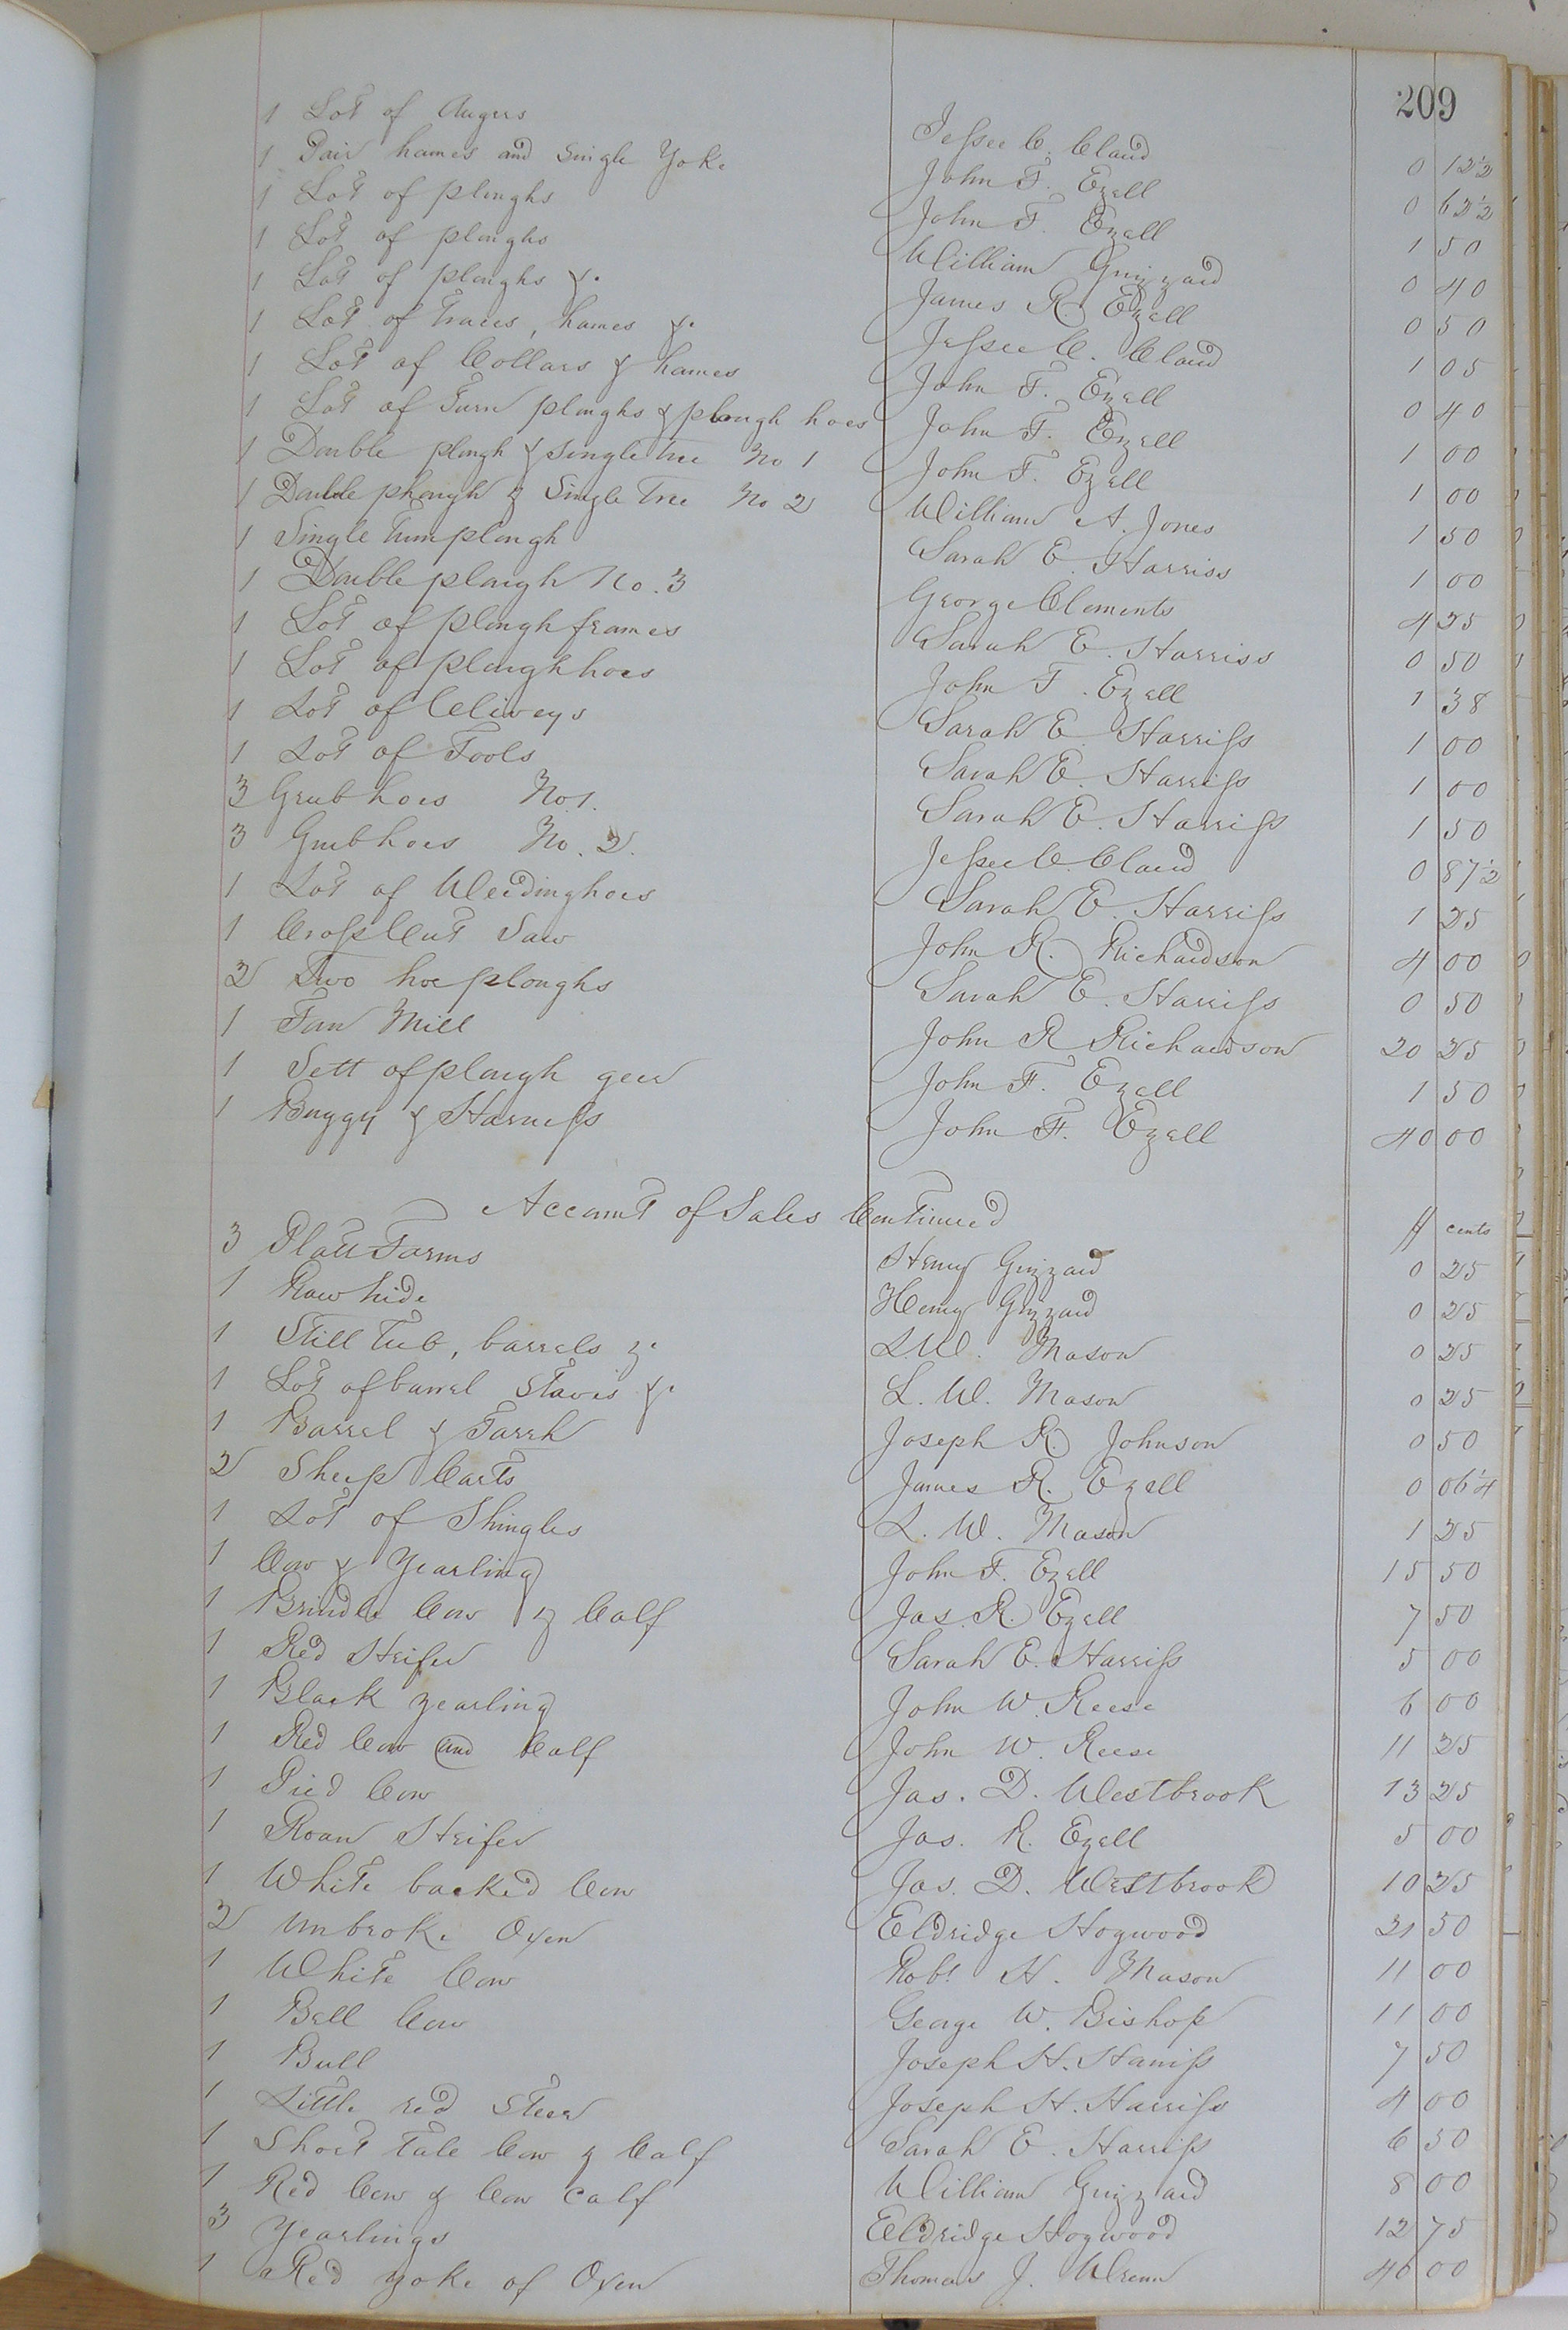 209
1 Lot of Augers Jessee C. Claud 0 12½
1 Pair hames and Single Yoke John F. Ezell 0 62½
1 Lot of ploughs John F. Ezell 1 50
1 Lot of ploughs William Grizzard 0 40
1 Lot of ploughs &c James R. Ezell 0 50
1 Lot of Traces, hames &c Jessee C. Claud 1 05
1 Lot of Collars & hames John F. Ezell 0 40
1 Lot of Turn ploughs & plough hoes John F. Ezell 1 00
1 Double plough & singletree No 1 John F. Ezell 1 00
1 Double plough & Single Tree No 2 William A. Jones 1 50
1 Single Turn plough Sarah E. Harriss 1 00
1 Double plough No. 3 George Clements 4 25
1 Lot of plough frames Sarah E. Harriss 0 50
1 Lot of plough hoes John F. Ezell 1 38
1 Lot of Cliveys Sarah E. Harriss 1 00
1 Lot of Tools Sarah E. Harriss 1 00
3 Grub hoes No 1. Sarah E. Harriss 1 50
3 Grubhoes No. 2. Jessee C. Claud 0 87½
1 Lot of Weedinghoes Sarah E. Harriss 1 25
1 Cross Cut Saw John R. Richardson 4 00
2 Two hoe ploughs Sarah E. Harriss 0 50
1 Fan Mill John R Richardson 20 25
1 Sett of plough gear John F. Ezell 1 50
1 Buggy & Harness John F. Ezell 40 00
Account of Sales Continued $ cents
3 Platt Forms Henry Grizzard 0 25
1 Raw hide Henry Grizzard 0 25
1 Still Tub, barrels &c L.W. Mason 0 25
1 Lot of barrel Staves &c L. W. Mason 0 25
1 Barrel & Joseph R. Johnson 0 50
2 Sheep James R. Ezell 0 06¼
1 Lot of Shingles L. W. Mason 1 25
1 Cow & Yearling John F. Ezell 15 50
1 Brindle Cow & Calf Jas. R. Ezell 7 50
1 Red Heifer Sarah E. Harriss 5 00
1 Black yearling John W. Reese 6 00
1 Red Cow and Calf John W. Reese 11 25
1 Pied Cow Jas. D. Westbrook 13 25
1 Roan Heifer Jas. R. Ezell 5 00
1 White backed Cow Jas. D. Westbrook 10 25
2 Unbroke Oxen Eldridge Hogwood 21 50
1 White Cow Robt. H. Mason 11 00
1 Bell Cow George W. Bishop 11 00
1 Bull Joseph H. Harriss 7 50
1 Little red Steer Joseph H. Harriss 4 00
1 Short Tale Cow & Calf Sarah E. Harriss 6 50
1 Red Cow & Cow Calf William Grizzard 8 00
3 Yearlings Eldridge Hogwood 12 75
1 Red yoke of Oxen Thomas J. Wrenn 40 00